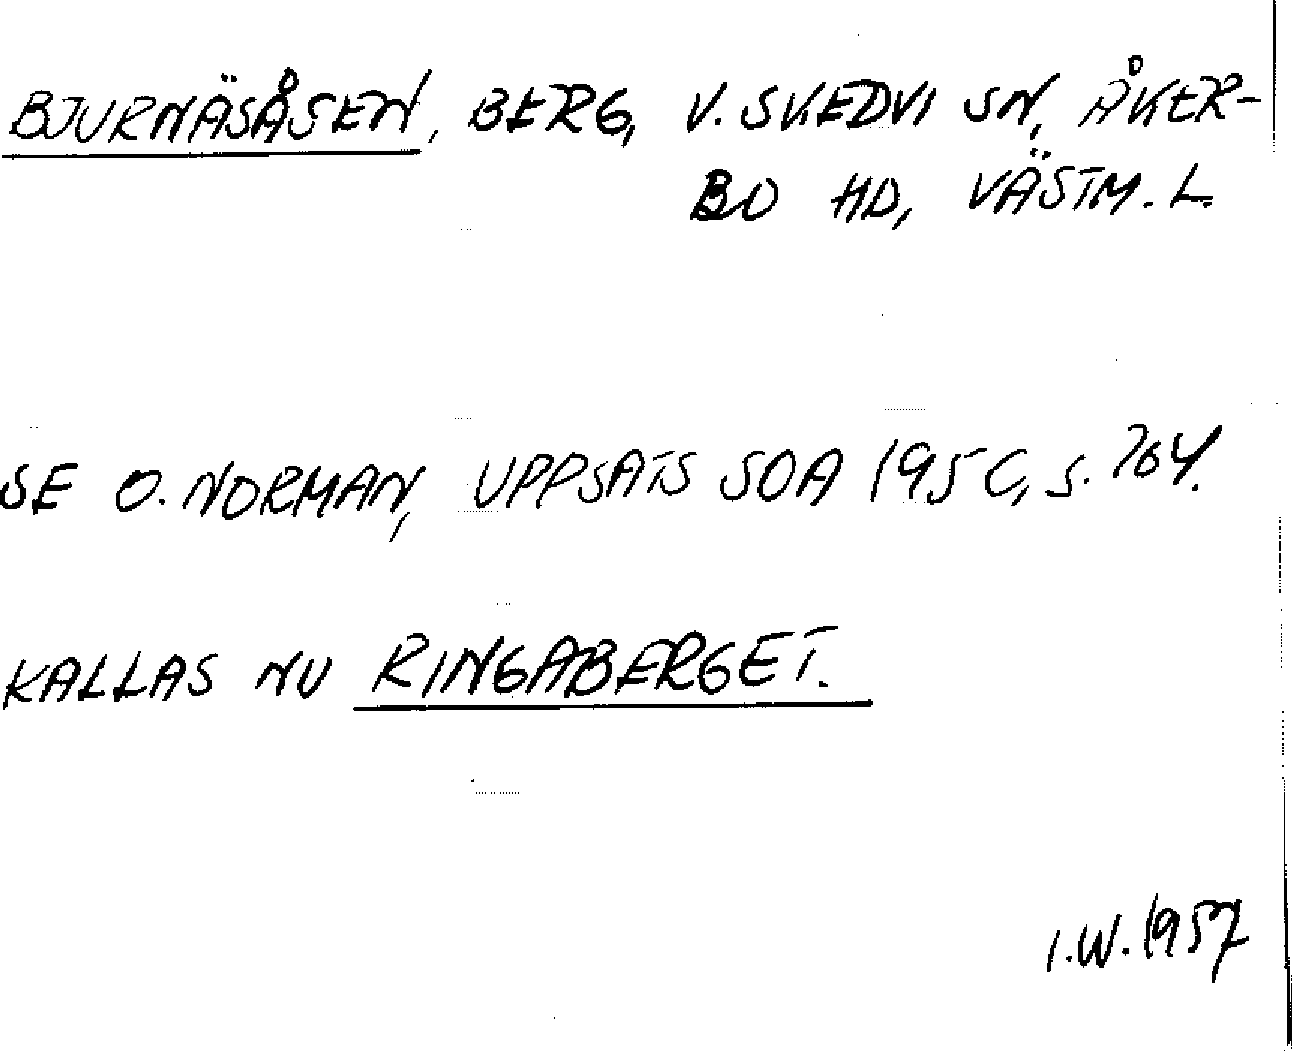 BJURNÄSÅSEN, BERG, V. SKEDVI SN, ÅKER-
BO HD, VÄSTM. L.
SE O. NORMAN, UPPSATS SOA 1950, S. 764.
KALLAS NU RINGABERGET.
I.W. 1957